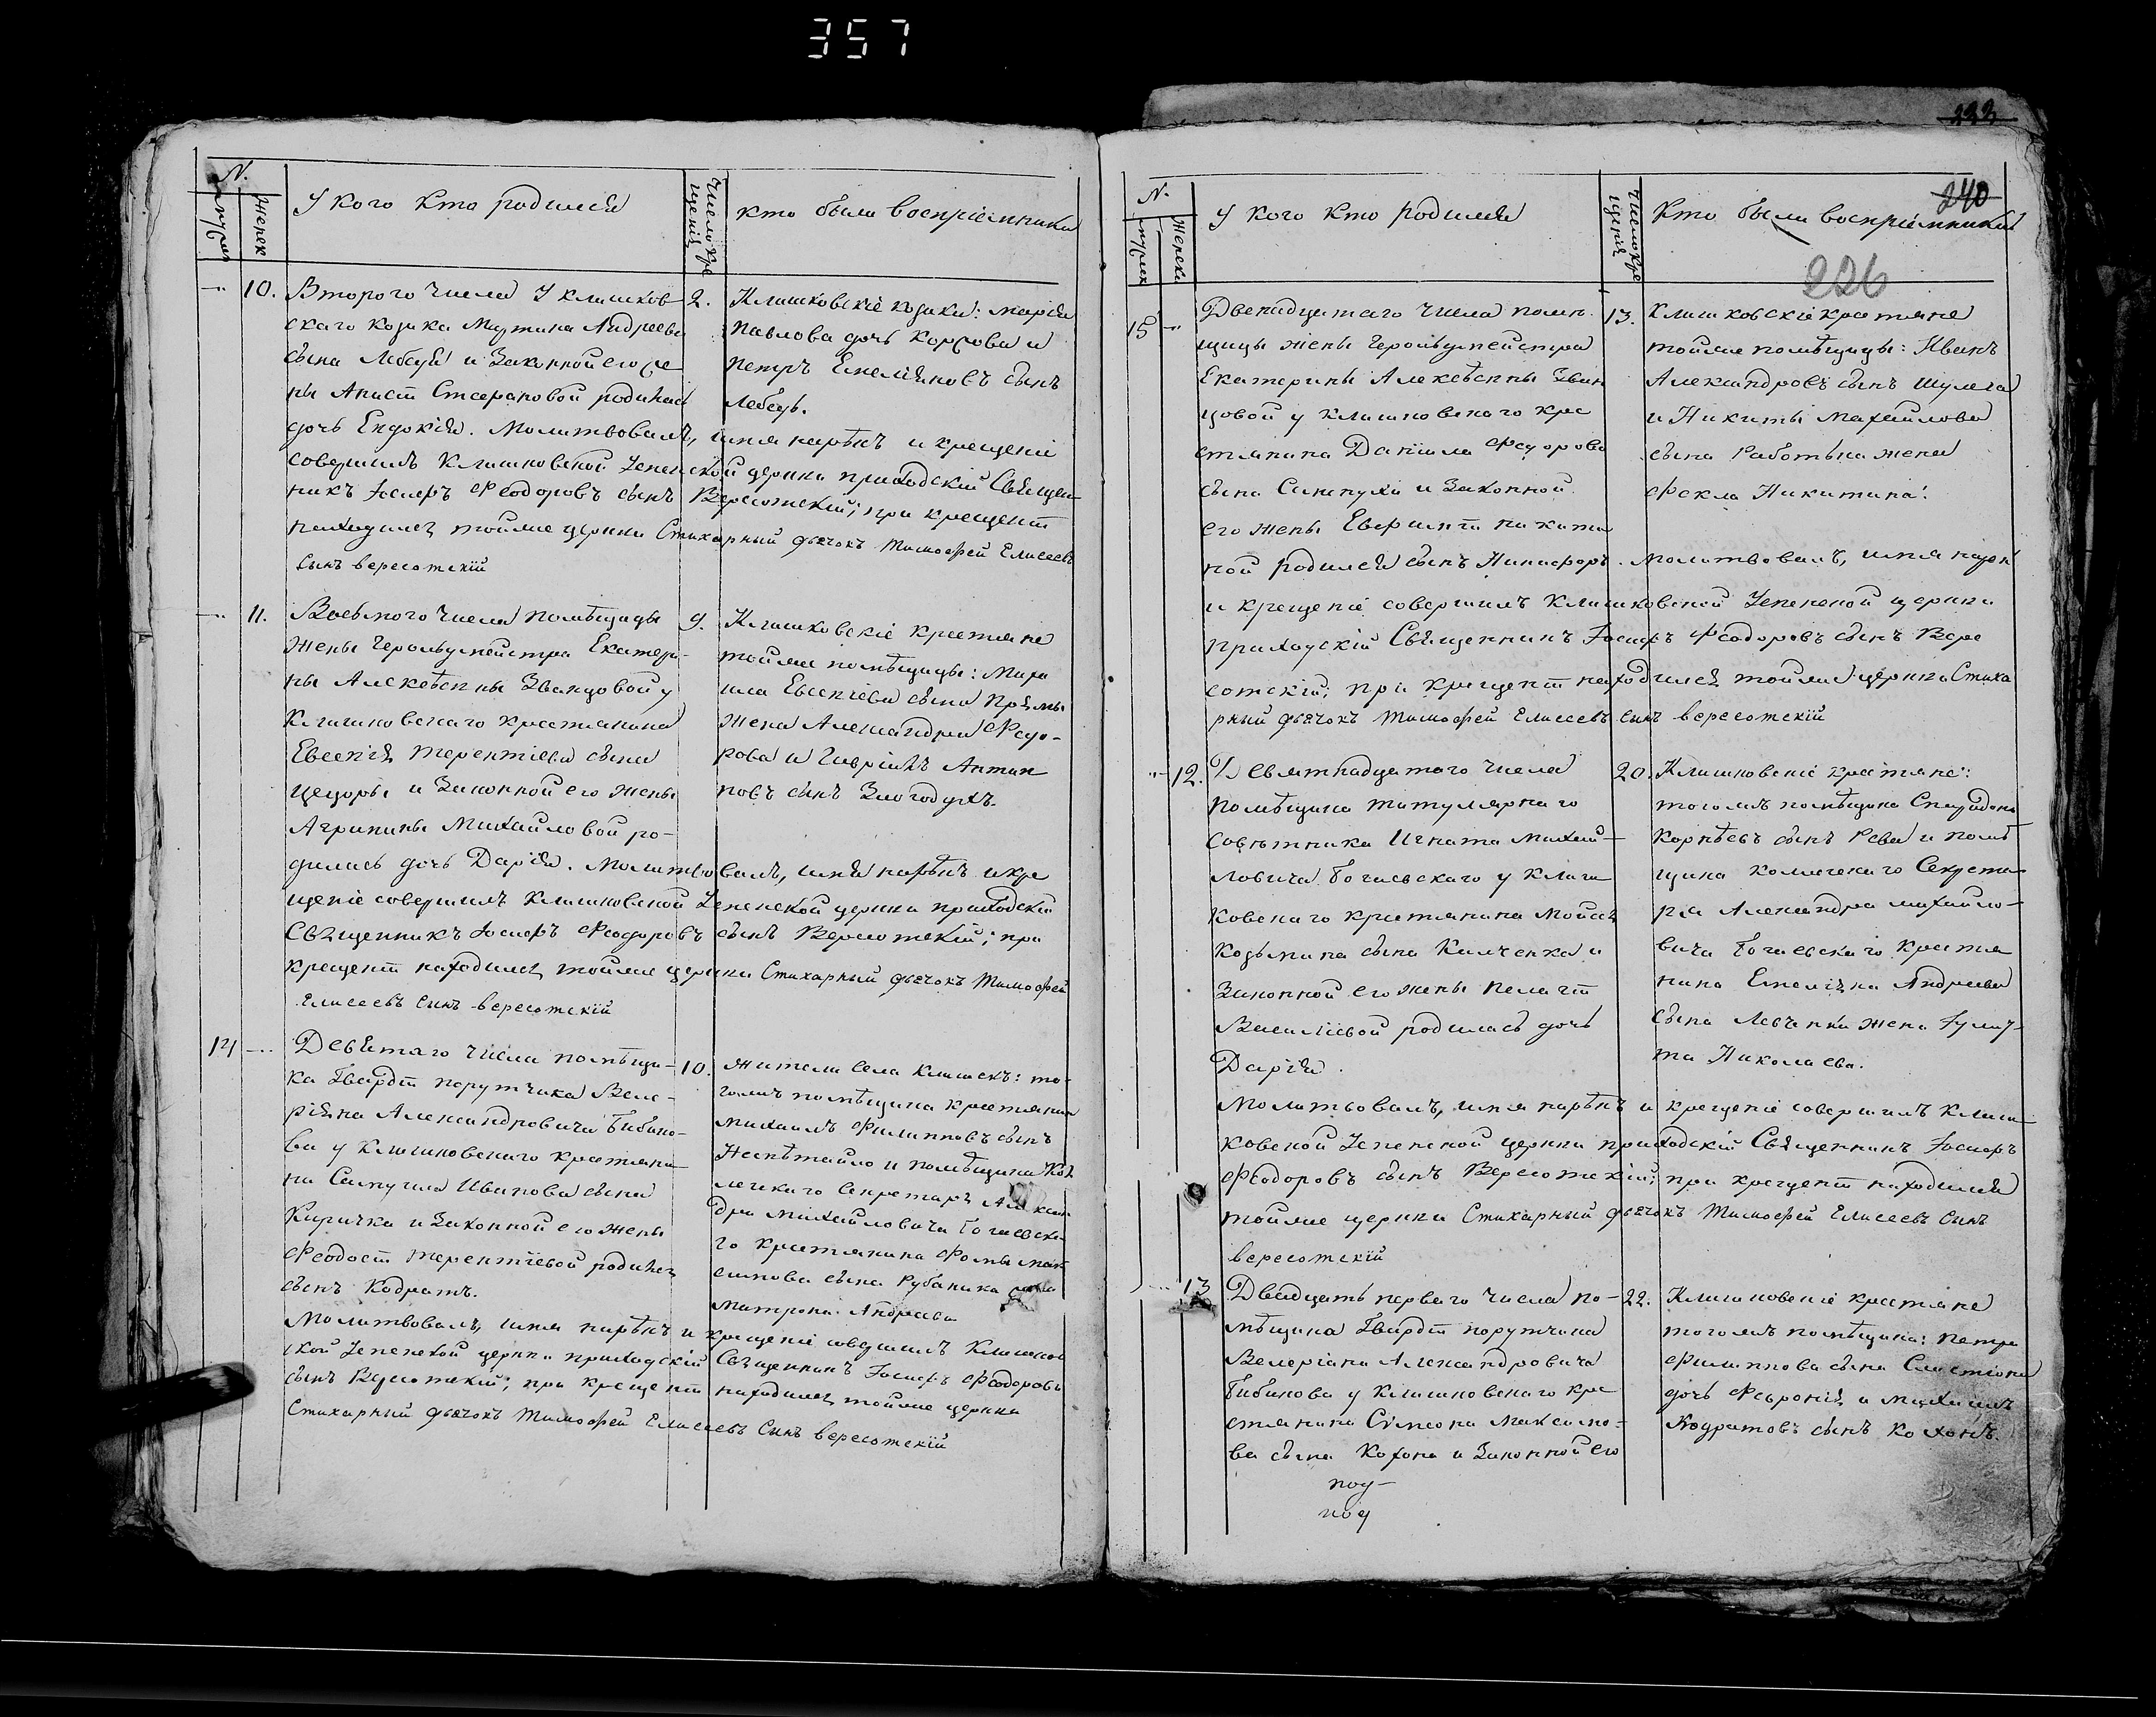 357
N.
мужск
Женск
У кого кто родился
Число кре
щенія
кто были воспріемники
10. Второго числа У клишков-
скаго козака Мартина Андреева
сына Лебедя и Законной его же
ны Анастасіи родилась
дочь Евдокія. Молитвовалъ, имя нарѣкъ и крещеніе
совершилъ Клишковской Успенской церкви приходскій Священ-
никъ Іосифъ Феодоровъ сынъ Вересотскій; при крещеніи
находился тойже церкви Стихарный дьячокъ Тимофей Елисеевъ
сынъ вересотскій
2. Клишковскіе козаки: марія
Павлова дочь и
Петръ Емеліановъ сынъ
Лебедь.
11. Восьмого числа помѣщицы
жены Герольдмейстра Екатери-
ны Алексѣевны Званцовой у
Клишковскаго крестьянина
Евсевія терентіева сына
Цецоры и Законной его жены
Агрипины Михайловой ро-
дилась дочь Дарія. Молитвовалъ, имя нарѣкъ и кре
щеніе совершилъ Клишковской Успенской церкви приходскій
Священникъ Іосифъ Феодоровъ сынъ Вересотскій; при
крещеніи находился тойже церкви Стихарный дьячокъ Тимофей
Елисеевъ сынъ вересотскій
9. Клишковскіе крестьяне
тойже помѣщицы: Миха
ила Евсевіева сына
жена Александра Федо-
рова и Гавріилъ Антип
повъ сынъ Злогодухъ.
14 Девятаго числа помѣщи-
ка Гвардіи порутчика Вале-
ріяна Александровича Бибико-
ва у Клишковскаго крестьяни-
на Самуила Иванова сына
Киричка и Законной его жены
Феодосіи терентіевой родился
сынъ Кодратъ.
Молитвовалъ, имя нарѣкъ и крещеніе совершилъ Клишков
ской Успенской церкви приходскій Священникъ Іосифъ Феодоровъ
сынъ Вересотскій; при крещеніи находился тойже церкви
Стихарный дьячокъ Тимофей Елисеевъ сынъ вересотскій
10. жители села Клишекъ: то-
гожъ помѣщика крестьянинъ
михаилъ Филипповъ сынъ
и помѣщика Кол
лежскаго Секретаря Алексан
дра михайловича Богаевска
го крестьянина Фомы мак
симова сына Рубаника жена
матрона Андреева
222
240
226
N.
мужск
Женска
У кого кто родился
Число кре
щенія
Кто были воспріемники
15 Двенадцатаго числа помѣ
щицы жены Герольдмейстра
Екатерины Алексѣевны Зван
цовой у клишковскаго кре
стьянина Даніила Федорова
сына и Законной
его жены никити
ной родился сынъ Никифоръ. молитвовалъ, имя нарѣкъ
и крещеніе совершилъ Клишковской Успенской церкви
приходскій Священникъ Іосифъ Феодоровъ сынъ Вере
сотскій; при крещеніи находился тойже церкви Стиха
рный дьячокъ Тимофей Елисеевъ сынъ вересотскій
13. Клишковскіе крестьяне
тойже помѣщицы: Иванъ
Александровъ сынъ Шулега
и Никиты Михайлова
сына Работька жена
Фекла Никитина.
12. Девятнадцатаго числа
помѣщика титулярнаго
Совѣтника Игната Михай-
ловича Богаевскаго у Клиш
ковскаго крестьянина Мойсея
Козьмина сына Кильченка и
Законной его жены Пелагеи
Василіевой родилась дочь
Дарія.
Молитвовалъ, имя нарѣкъ и крещеніе совершилъ Клиш
ковской Успенской церкви приходскій Священникъ Іосифъ
Феодоровъ сынъ Вересотскій; при крещеніи находился
тойже церкви Стихарный дьячокъ Тимофей Елисеевъ сынъ
вересотскій
20. Клишковскіе крестьяне:
тогожъ помѣщика Спиридонъ
Корнѣевъ сынъ Рева и помѣ
щика коллежскаго Секрета
ря Александра михайло-
вича Богаевскаго крестья
нина Емеліяна Андреева
сына Левченка жена Іулит-
та Николаева.
13 Двадцать перваго числа по-
мѣщика Гвардіи порутчика
Валеріана Александровича
Бибикова у клишковскаго кре
стьянина Сѵмеона Максимо-
ва сына Кохона и Законной его
под-
под
22. Клишковскіе крестьяне
тогожъ помѣщика: Петра
Филиппова сына
дочь Февронія и михаилъ
Кодратовъ сынъ Кохонъ.